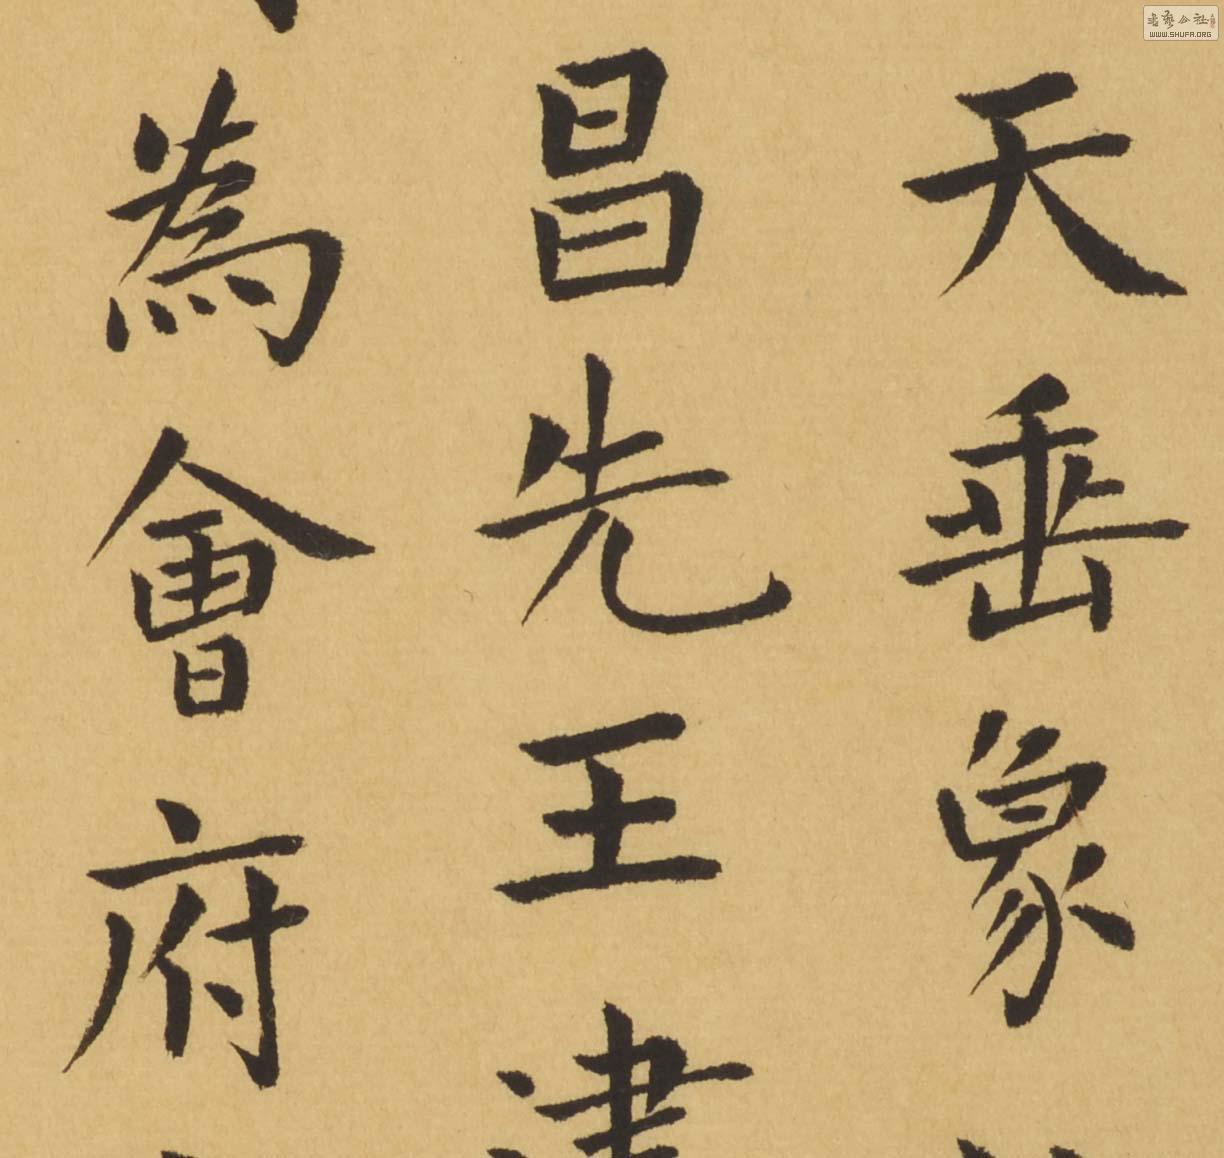 天垂象
昌先王建
為會府
書藝公社
WWW.SHUFA.ORG